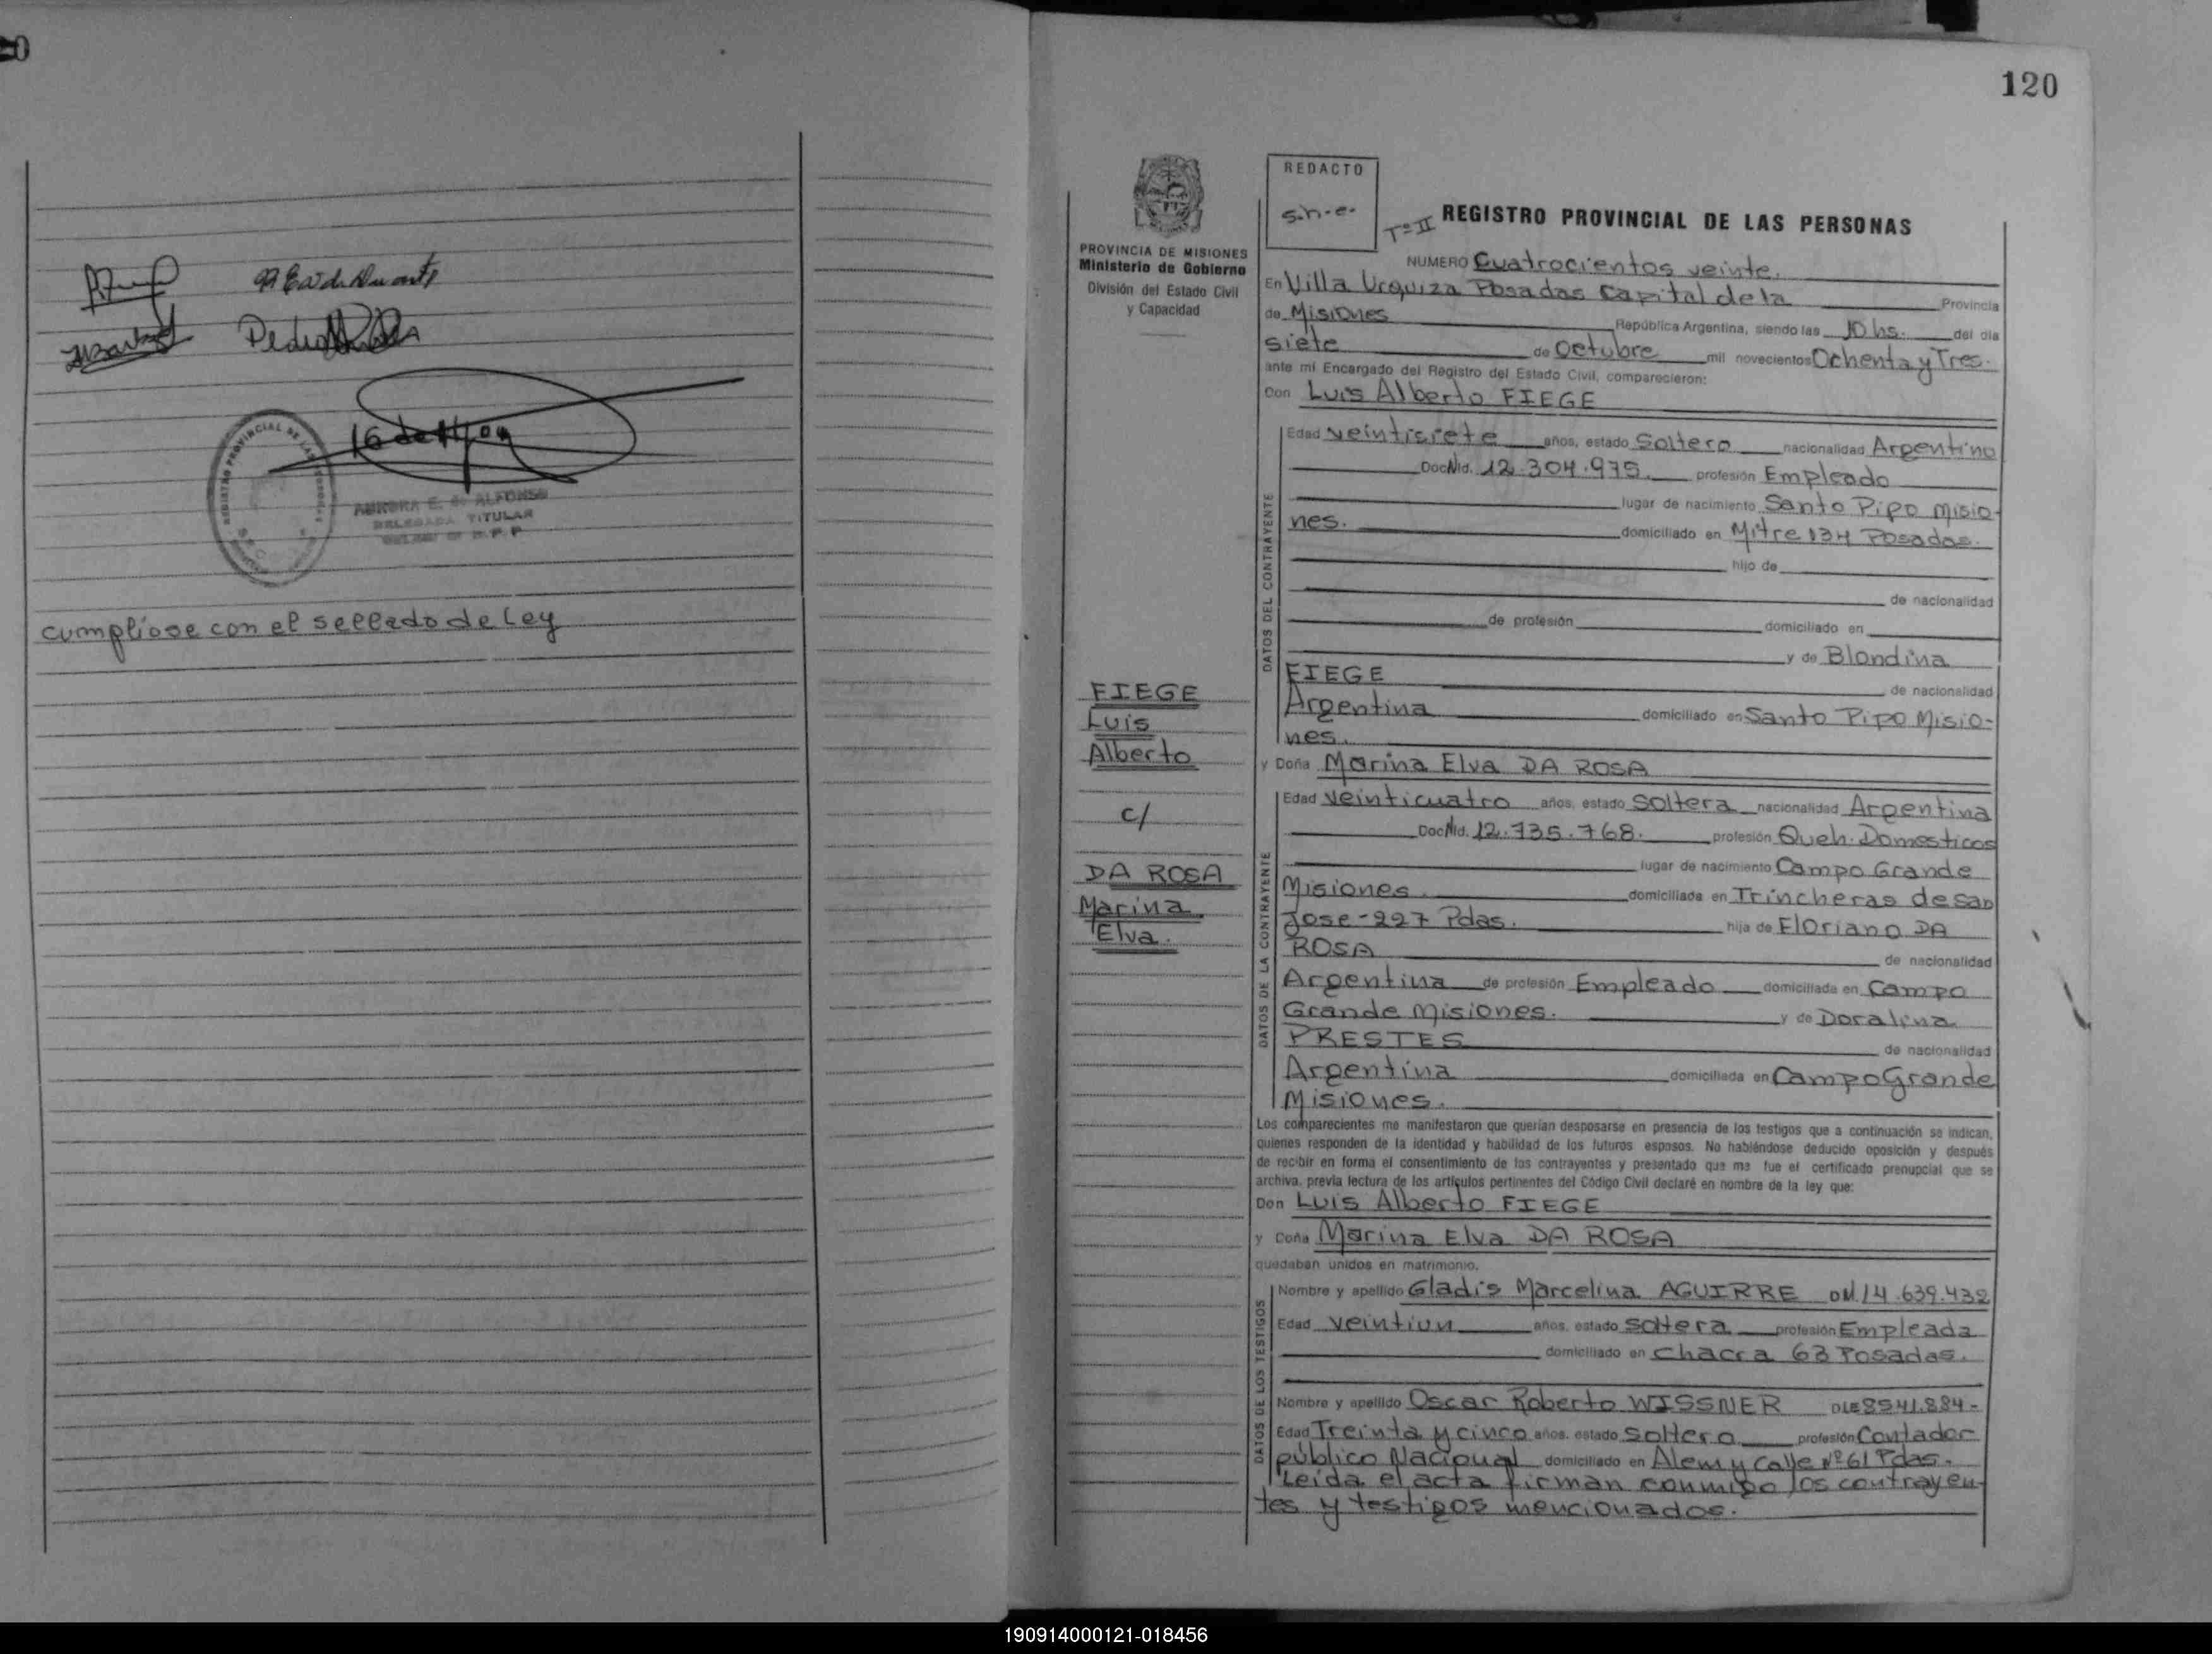 Pedro
REGISTRO PROVINCIAL DE LAS PERSONAS
16 de
AURORA E. de ALFONSO
DELEGADA TITULAR
cumpliose con el sellado de Ley
120
PROVINCIA DE MISIONES
Ministerio de Gobierno
División del Estado Civil
y Capacidad
FIEGE
Luis
Alberto
c/
DA ROSA
Marina
Elva.
REDACTO
s.h.e.
Tº II REGISTRO PROVINCIAL DE LAS PERSONAS
NUMERO Cuatrocientos veinte.
En Villa Urquiza Posadas Capital de la Provincia
de Misiones República Argentina, siendo las 10 hs. del día
siete de Octubre mil novecientos Ochenta y Tres.
ante mí Encargado del Registro del Estado Civil, comparecieron:
Don Luis Alberto FIEGE
DATOS DEL CONTRAYENTE
Edad veintisiete años, estado Soltero nacionalidad Argentino
Doc Nid. 12.304.975. profesión Empleado
lugar de nacimiento Santo Pipo Misio-
nes. domiciliado en Mitre 134 Posadas.
hijo de
de nacionalidad
de profesión domiciliado en
y de Blondina
FIEGE de nacionalidad
Argentina domiciliado en Santo Pipo Misio-
nes.
y Doña Marina Elva DA ROSA
DATOS DE LA CONTRAYENTE
Edad veinticuatro años, estado Soltera nacionalidad Argentina
Doc Nid. 12.735.768. profesión Queh. Domesticos
lugar de nacimiento Campo Grande
Misiones. domiciliada en Trincheras de San
Jose-227 Pdas. hija de Floriano DA
ROSA de nacionalidad
Argentina de profesión Empleado domiciliada en Campo
Grande Misiones. y de Doralina
PRESTES de nacionalidad
Argentina domiciliada en Campo Grande
Misiones.
Los comparecientes me manifestaron que querían desposarse en presencia de los testigos que a continuación se indican,
quienes responden de la identidad y habilidad de los futuros esposos. No habiéndose deducido oposición y después
de recibir en forma el consentimiento de los contrayentes y presentado que me fue el certificado prenupcial que se
archiva, previa lectura de los artículos pertinentes del Código Civil declaré en nombre de la ley que:
Don Luis Alberto FIEGE
y Doña Marina Elva DA ROSA
quedaban unidos en matrimonio.
DATOS DE LOS TESTIGOS
Nombre y apellido Gladis Marcelina AGUIRRE DNI 14.639.432
Edad veintiun años, estado Soltera profesión Empleada
domiciliado en Chacra 63 Posadas.
Nombre y apellido Oscar Roberto WISSNER DLE 8541.884-
Edad Treinta y cinco años, estado Soltero profesión Contador
público Nacional domiciliado en Alem y Calle Nº 61 Pdas.
Leida el acta firman conmigo los contrayen-
tes y testigos mencionados.
190914000121-018456